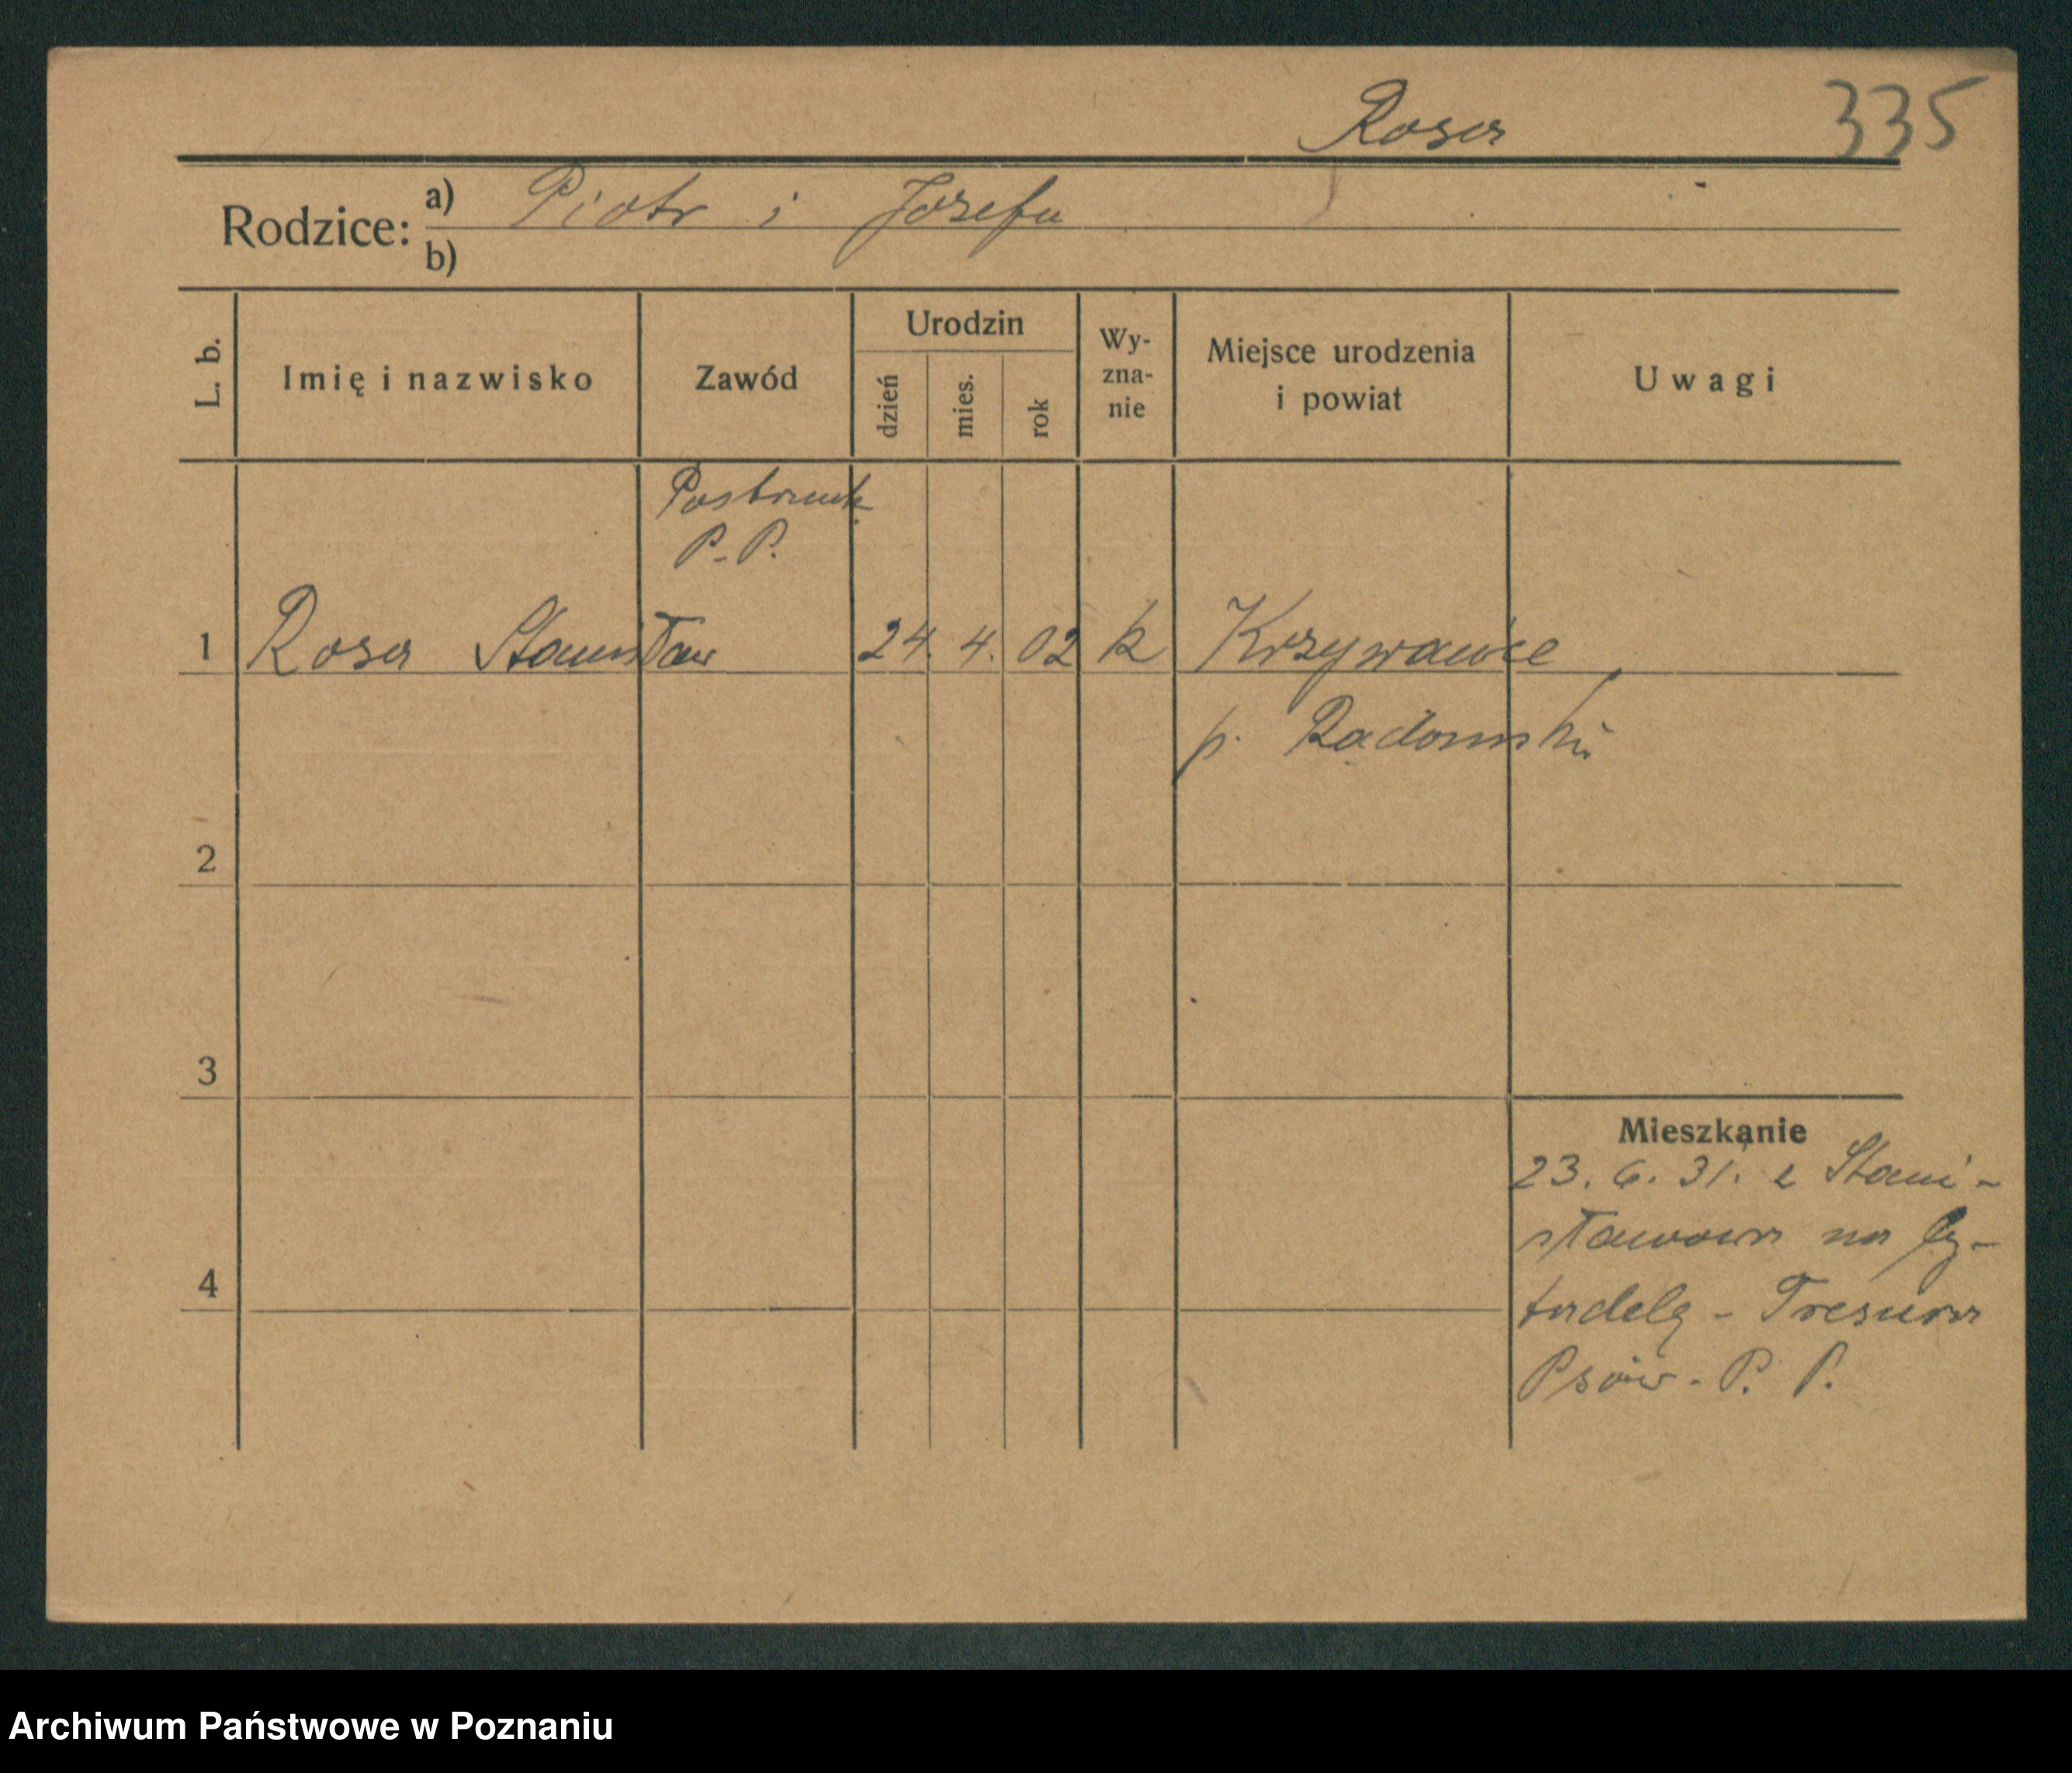 Rosa 335
Rodzice: a) Piotr i Józefa
b)
L. b. Imię i nazwisko Zawód Urodzin dzień mies. rok Wy-zna-nie Miejsce urodzenia i powiat Uwagi
Postrunk
P. P.
1 Rosa Stanisław 24. 4. 02 k Krzywanice
p. Radomsko
2
3
Mieszkanie
23. 6. 31. z Stani-
sławowa na Cy-
4
tadelę - Tresura
Psów - P. P.
Archiwum Państwowe w Poznaniu